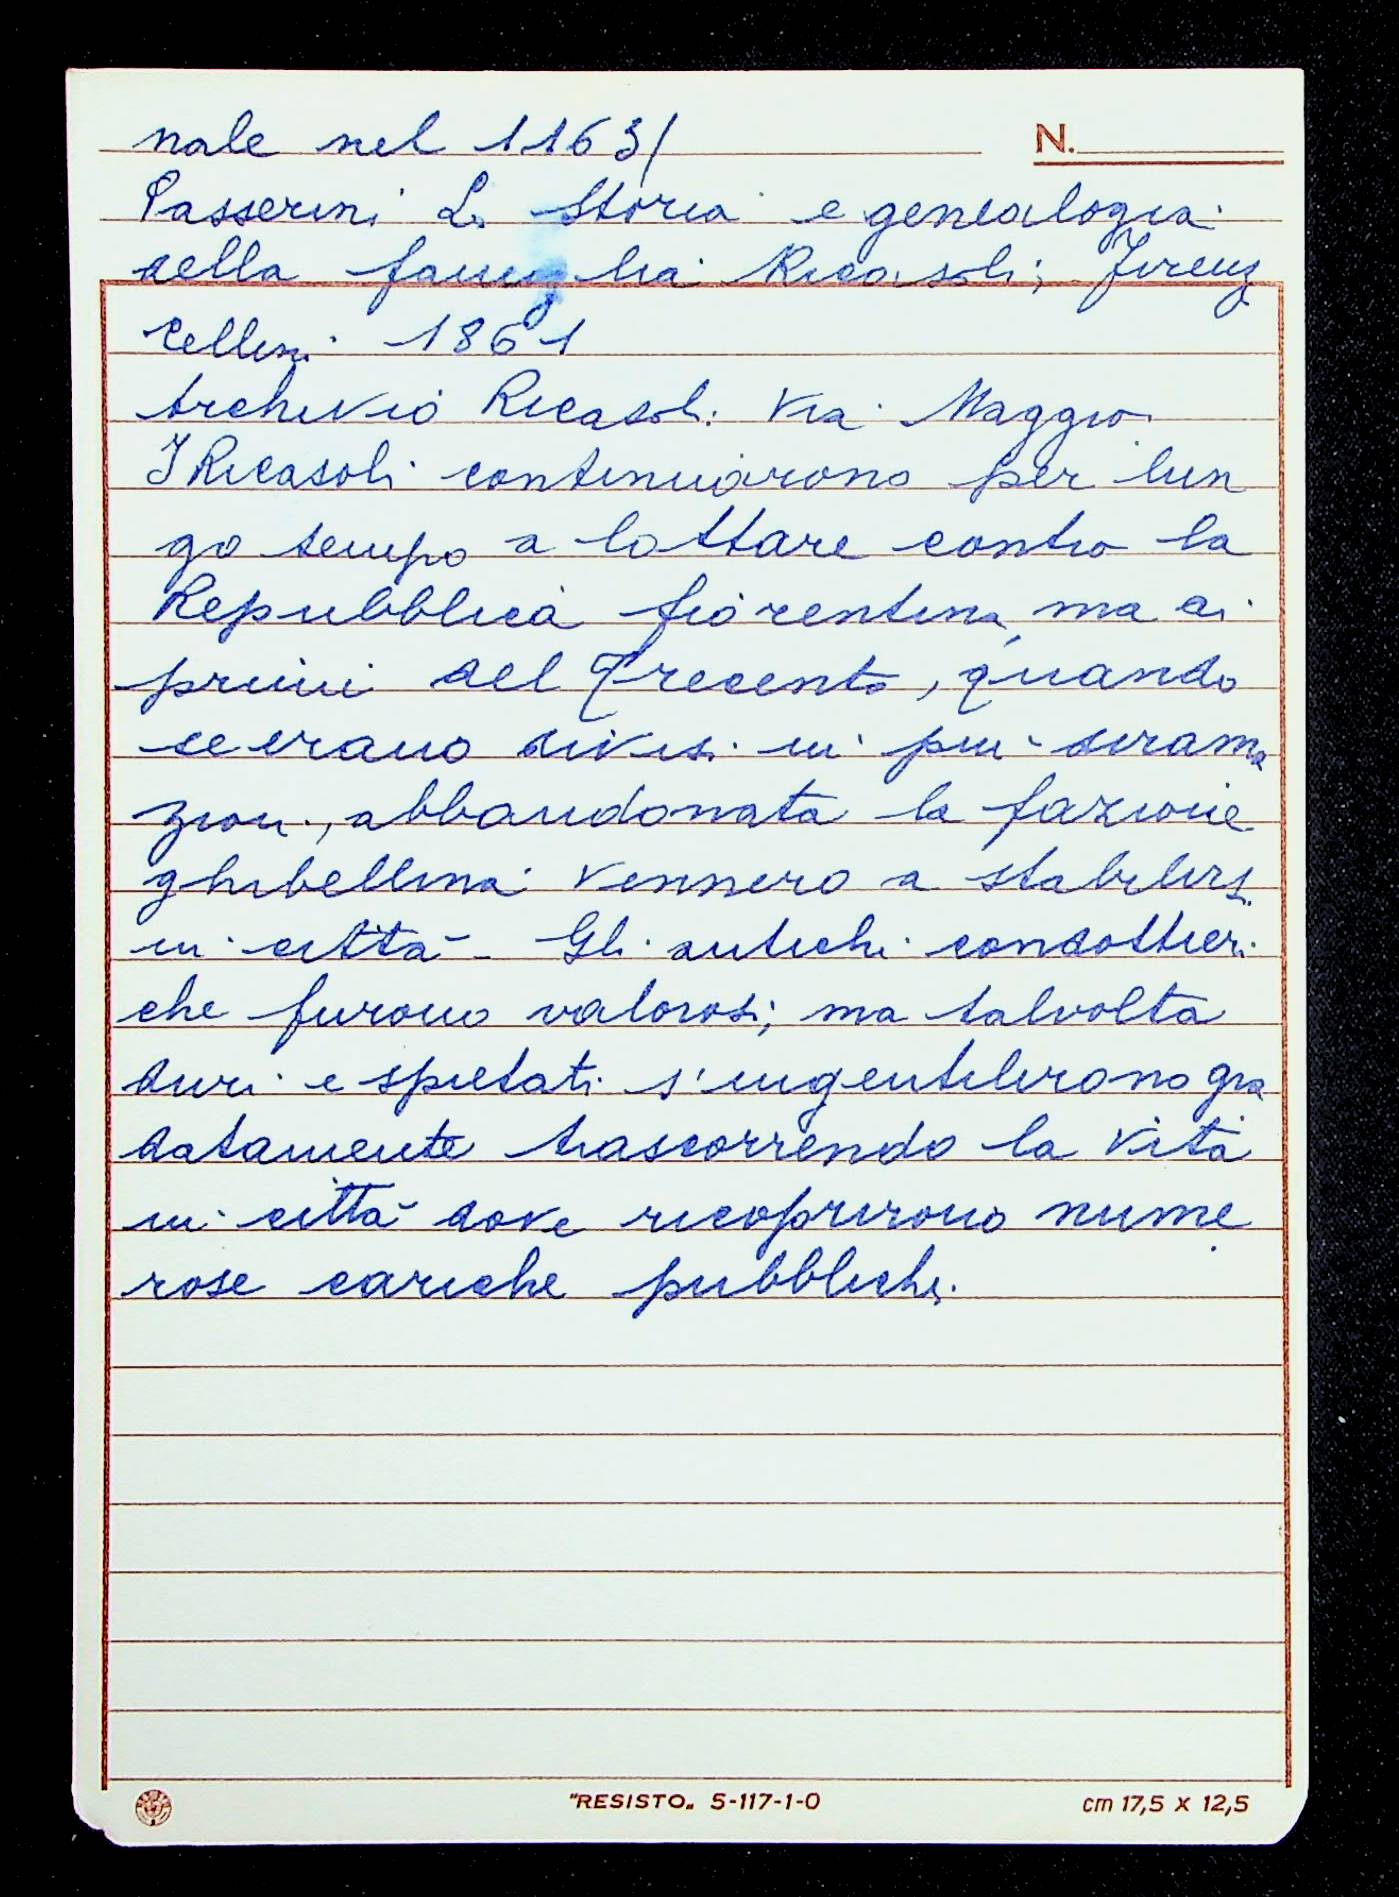 nale nel 1163/
N.
Passerini L. Storia e genealogia
della famiglia Ricasoli; Firenz
Cellini 1861
Archivio Ricasoli Via Maggio
I Ricasoli continuarono per lun
go tempo a lottare contro la
Repubblica fiorentina, ma ai
primi del Trecento, quando
se erano divisi in più dirama
zioni, abbandonata la fazione
ghibellina vennero a stabilirsi
in città - Gli antichi condottieri
che furono valorosi; ma talvolta
duri e spietati s'ingentilirono gra
datamente trascorrendo la vita
in città dove ricoprirono nume
rose cariche pubbliche.
"RESISTO„ 5-117-1-0
cm 17,5 x 12,5